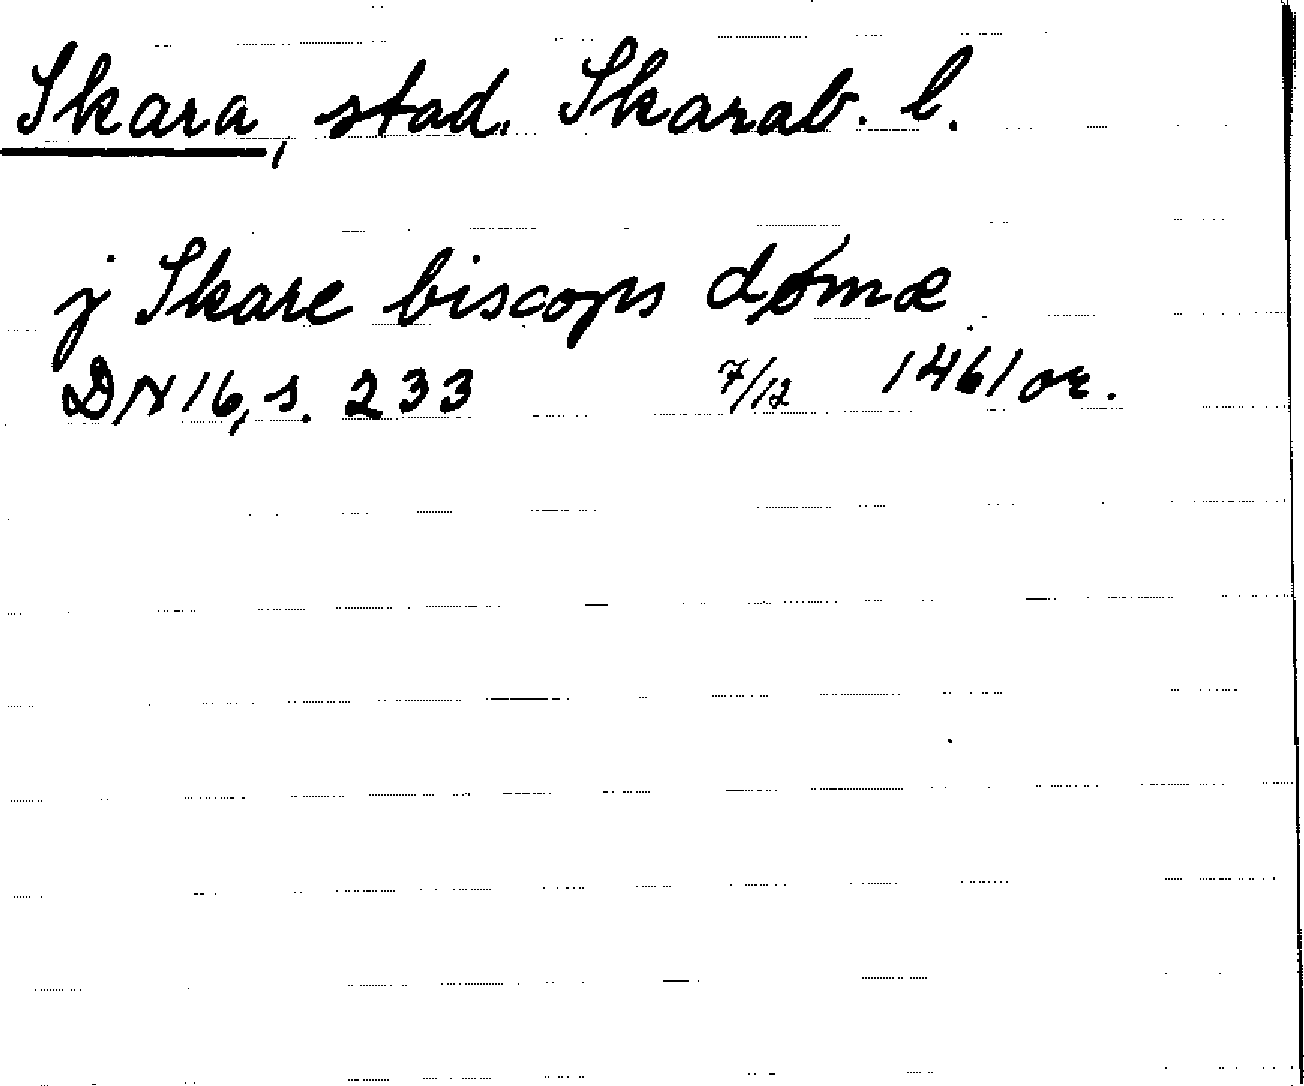 Skara, stad. Skarab. l.
j Skare biscops dømæ
DN 16, s. 233 7/12 1461 or.